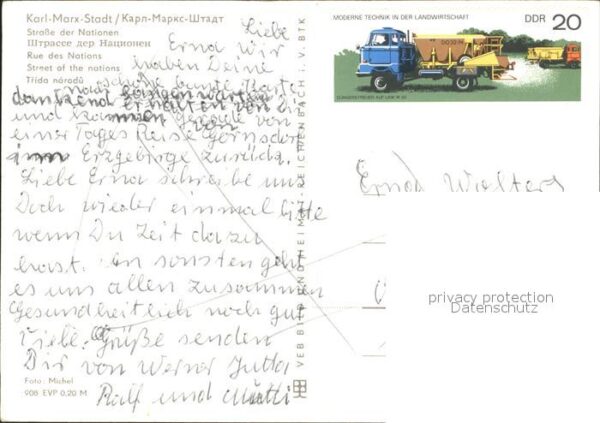 Karl-Marx-Stadt / Карл-Маркс-Штадт
Straße der Nationen
Штрассе дер Национен
Rue des Nations
Street of the nations
Třída národů
Liebe
Erna Wir
haben Deine
schöne bunte Karte
dankend erhalten
und kommen Gerade von
einer Tages Reise
im Erzgebirge zurück.
Liebe Erna schreibe uns
Doch wieder einmal bitte
wenn Du Zeit dazu
hast. An sonsten geht
es uns allen zusammen
Gesundheitlich noch gut
Viele Grüße senden
Dir von Werner Jutta
Ralf und Mutti
Foto: Michel
908 EVP 0,20 M
VEB BILD UND HEIMAT REICHENBACH i. V. BTK
MODERNE TECHNIK IN DER LANDWIRTSCHAFT
DDR 20
DÜNGERSTREUER AUF LKW W 50
Erna Wolters
privacy protection
Datenschutz